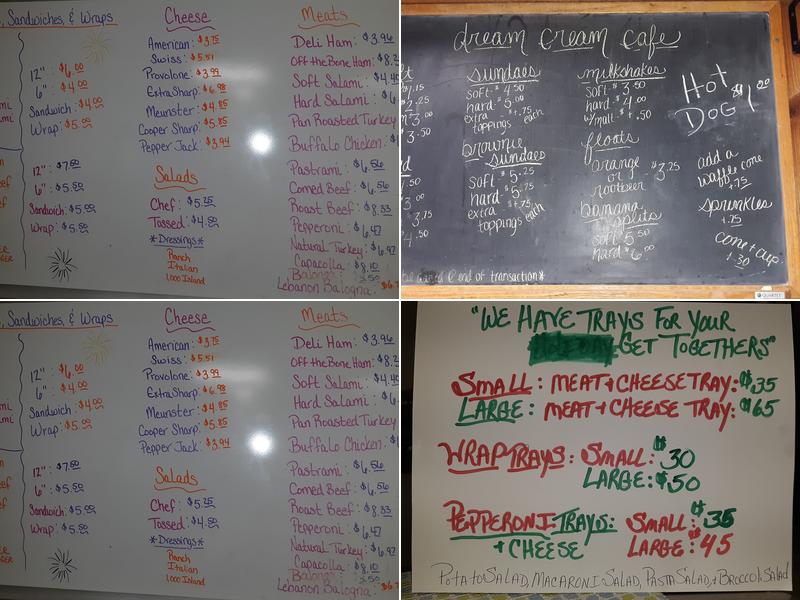 , Sandwiches, & Wraps
12": $6.00
6": $4.00
Sandwich: $4.00
Wrap: $5.00
12": $7.50
6": $5.50
Sandwich: $5.00
Wrap: $5.50
Cheese
American: $3.75
Swiss: $5.51
Provolone: $3.99
Extra Sharp: $6.98
Meunster: $4.85
Cooper Sharp: $5.85
Pepper Jack: $3.94
Salads
Chef: $5.25
Tossed: $4.50
*Dressings*
Ranch
Italian
1,000 Island
Meats
Deli Ham: $3.96
Off the Bone Ham: $8.2
Soft Salami: $4.4
Hard Salami: $
Pan Roasted Turkey
Buffalo Chicken:
Pastrami: $6.56
Corned Beef: $6.56
Roast Beef: $8.33
Pepperoni: $6.47
Natural Turkey: $6.97
Capacolla: $8.10
Balogna
Lebanon Balogna: $6.
dream cream cafe
sundaes
soft - $4.50
hard - $5.00
extra + $.75
toppings each
brownie
sundaes
soft $5.25
hard $5.75
extra + $.75
toppings each
milkshakes
soft - $3.50
hard - $4.00
w/malt - +$.50
floats
orange
or
rootbeer $3.25
banana
splits
soft $5.50
hard $6.00
Hot
Dog $1.00
add a
waffle cone
$.75
sprinkles
+.25
cone + cup
+.30
end of transaction*
QUARTET
, Sandwiches, & Wraps
12": $6.00
6": $4.00
Sandwich: $4.00
Wrap: $5.00
12": $7.50
6": $5.50
Sandwich: $5.00
Wrap: $5.50
Cheese
American: $3.75
Swiss: $5.51
Provolone: $3.99
Extra Sharp: $6.98
Meunster: $4.85
Cooper Sharp: $5.85
Pepper Jack: $3.94
Salads
Chef: $5.25
Tossed: $4.50
*Dressings*
Ranch
Italian
1,000 Island
Meats
Deli Ham: $3.96
Off the Bone Ham: $8.2
Soft Salami: $4.4
Hard Salami: $
Pan Roasted Turkey
Buffalo Chicken:
Pastrami: $6.56
Corned Beef: $6.56
Roast Beef: $8.33
Pepperoni: $6.47
Natural Turkey: $6.97
Capacolla: $8.10
Balogna
Lebanon Balogna: $6.
"WE HAVE TRAYS FOR YOUR
GET TOGETHERS"
SMALL: MEAT + CHEESE TRAY: $35
LARGE: MEAT + CHEESE TRAY: $65
WRAP TRAYS: SMALL: $30
LARGE: $50
PEPPERONI TRAYS: SMALL: $35
+ CHEESE LARGE: $45
POTATO SALAD, MACARONI SALAD, PASTA SALAD, + BROCCOLI SALAD